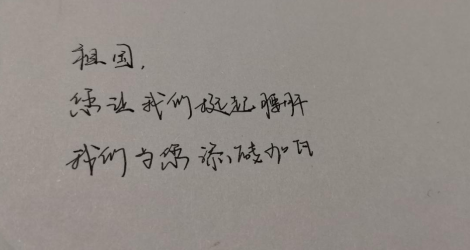 祖国,
您让我们挺起腰杆
我们为您添砖加瓦